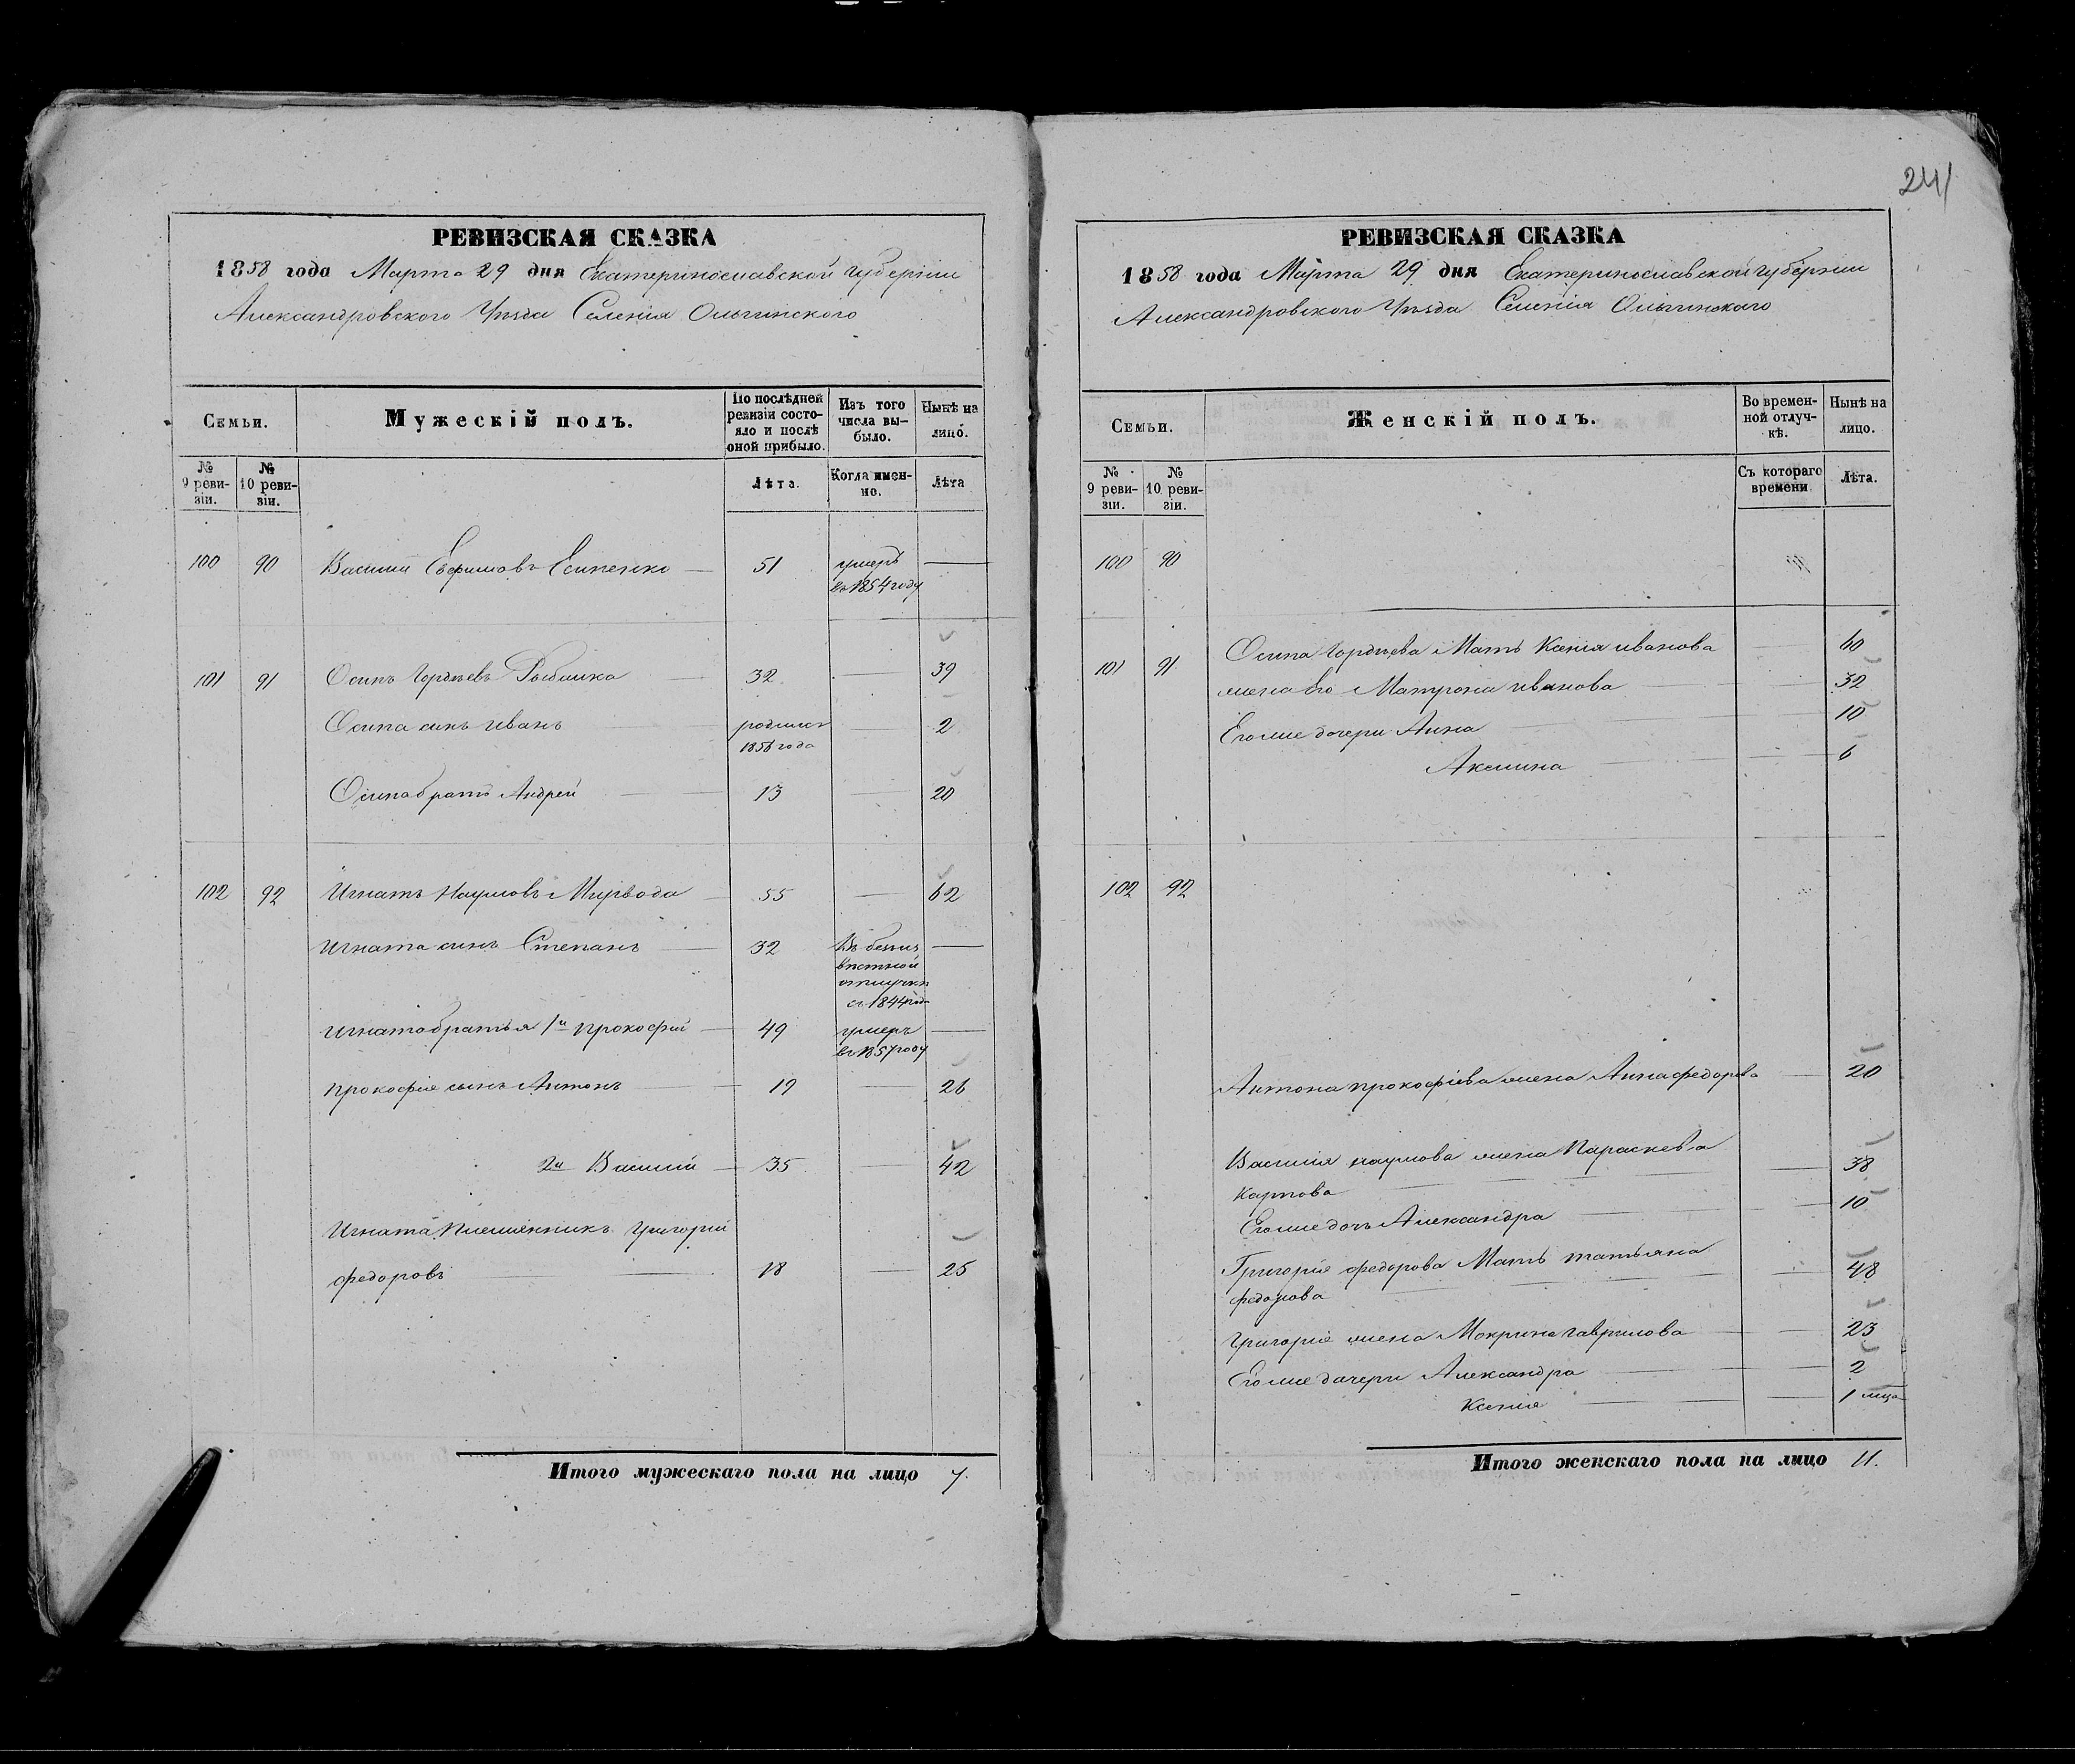 241
РЕВИЗСКАЯ СКАЗКА
1858 года Марта 29 дня Екатеринославской губерніи
Александровского Уѣзда Селенія Ольгинского
Семьи.
Мужескій полъ.
По послѣдней ревизіи состояло и послѣ оной прибыло.
Изъ того числа выбыло.
Нынѣ на лицо.
№ 9 ревизіи.
№ 10 ревизіи.
Лѣта.
Когда именно.
Лѣта
100 90 Василій Ефимовъ Есипенко 51 умеръ
въ 1854 году
101 91 Осипъ Гордѣевъ 32 39
Осипа сынъ Иванъ родился 2
1856 года
Осипа братъ Андрей 13 20
102 92 Игнатъ Наумовъ Мирвода 55 62
Игната сынъ Степанъ 32 Въ безъиз
вѣстной
отлучкѣ
съ 1844 года
Игната братья 1й Прокофий 49 умеръ
въ 1857 году
Прокофія сынъ Антонъ 19 26
2й Василій 35 42
Игната Племянникъ Григорій
Федоровъ 18 25
Итого мужескаго пола на лицо 7.
РЕВИЗСКАЯ СКАЗКА
1858 года Марта 29 дня Екатеринославской губерніи
Александровского Уѣзда Селенія Ольгинского
Семьи.
Женскій полъ.
Во временной отлучкѣ.
Нынѣ на лицо.
№ 9 ревизіи.
№ 10 ревизіи.
Съ котораго времени
Лѣта.
100 90
101 91 Осипа Гордѣева Мать Ксенія Иванова 60
жена его Матрона Иванова 32
Его же дочери Анна 10
Акилина 6
102 92
Антона Прокофіева жена Анна Федорова 20
Василія Наумова жена Параскева 38
Карпова
Его же дочь Александра 10
Григорія Федорова Мать Татьяна 48
Федорова
Григорія жена Мокрина Гаврилова 23
Его же дочери Александра 2
Ксенія 1 мца
Итого женскаго пола на лицо 11.